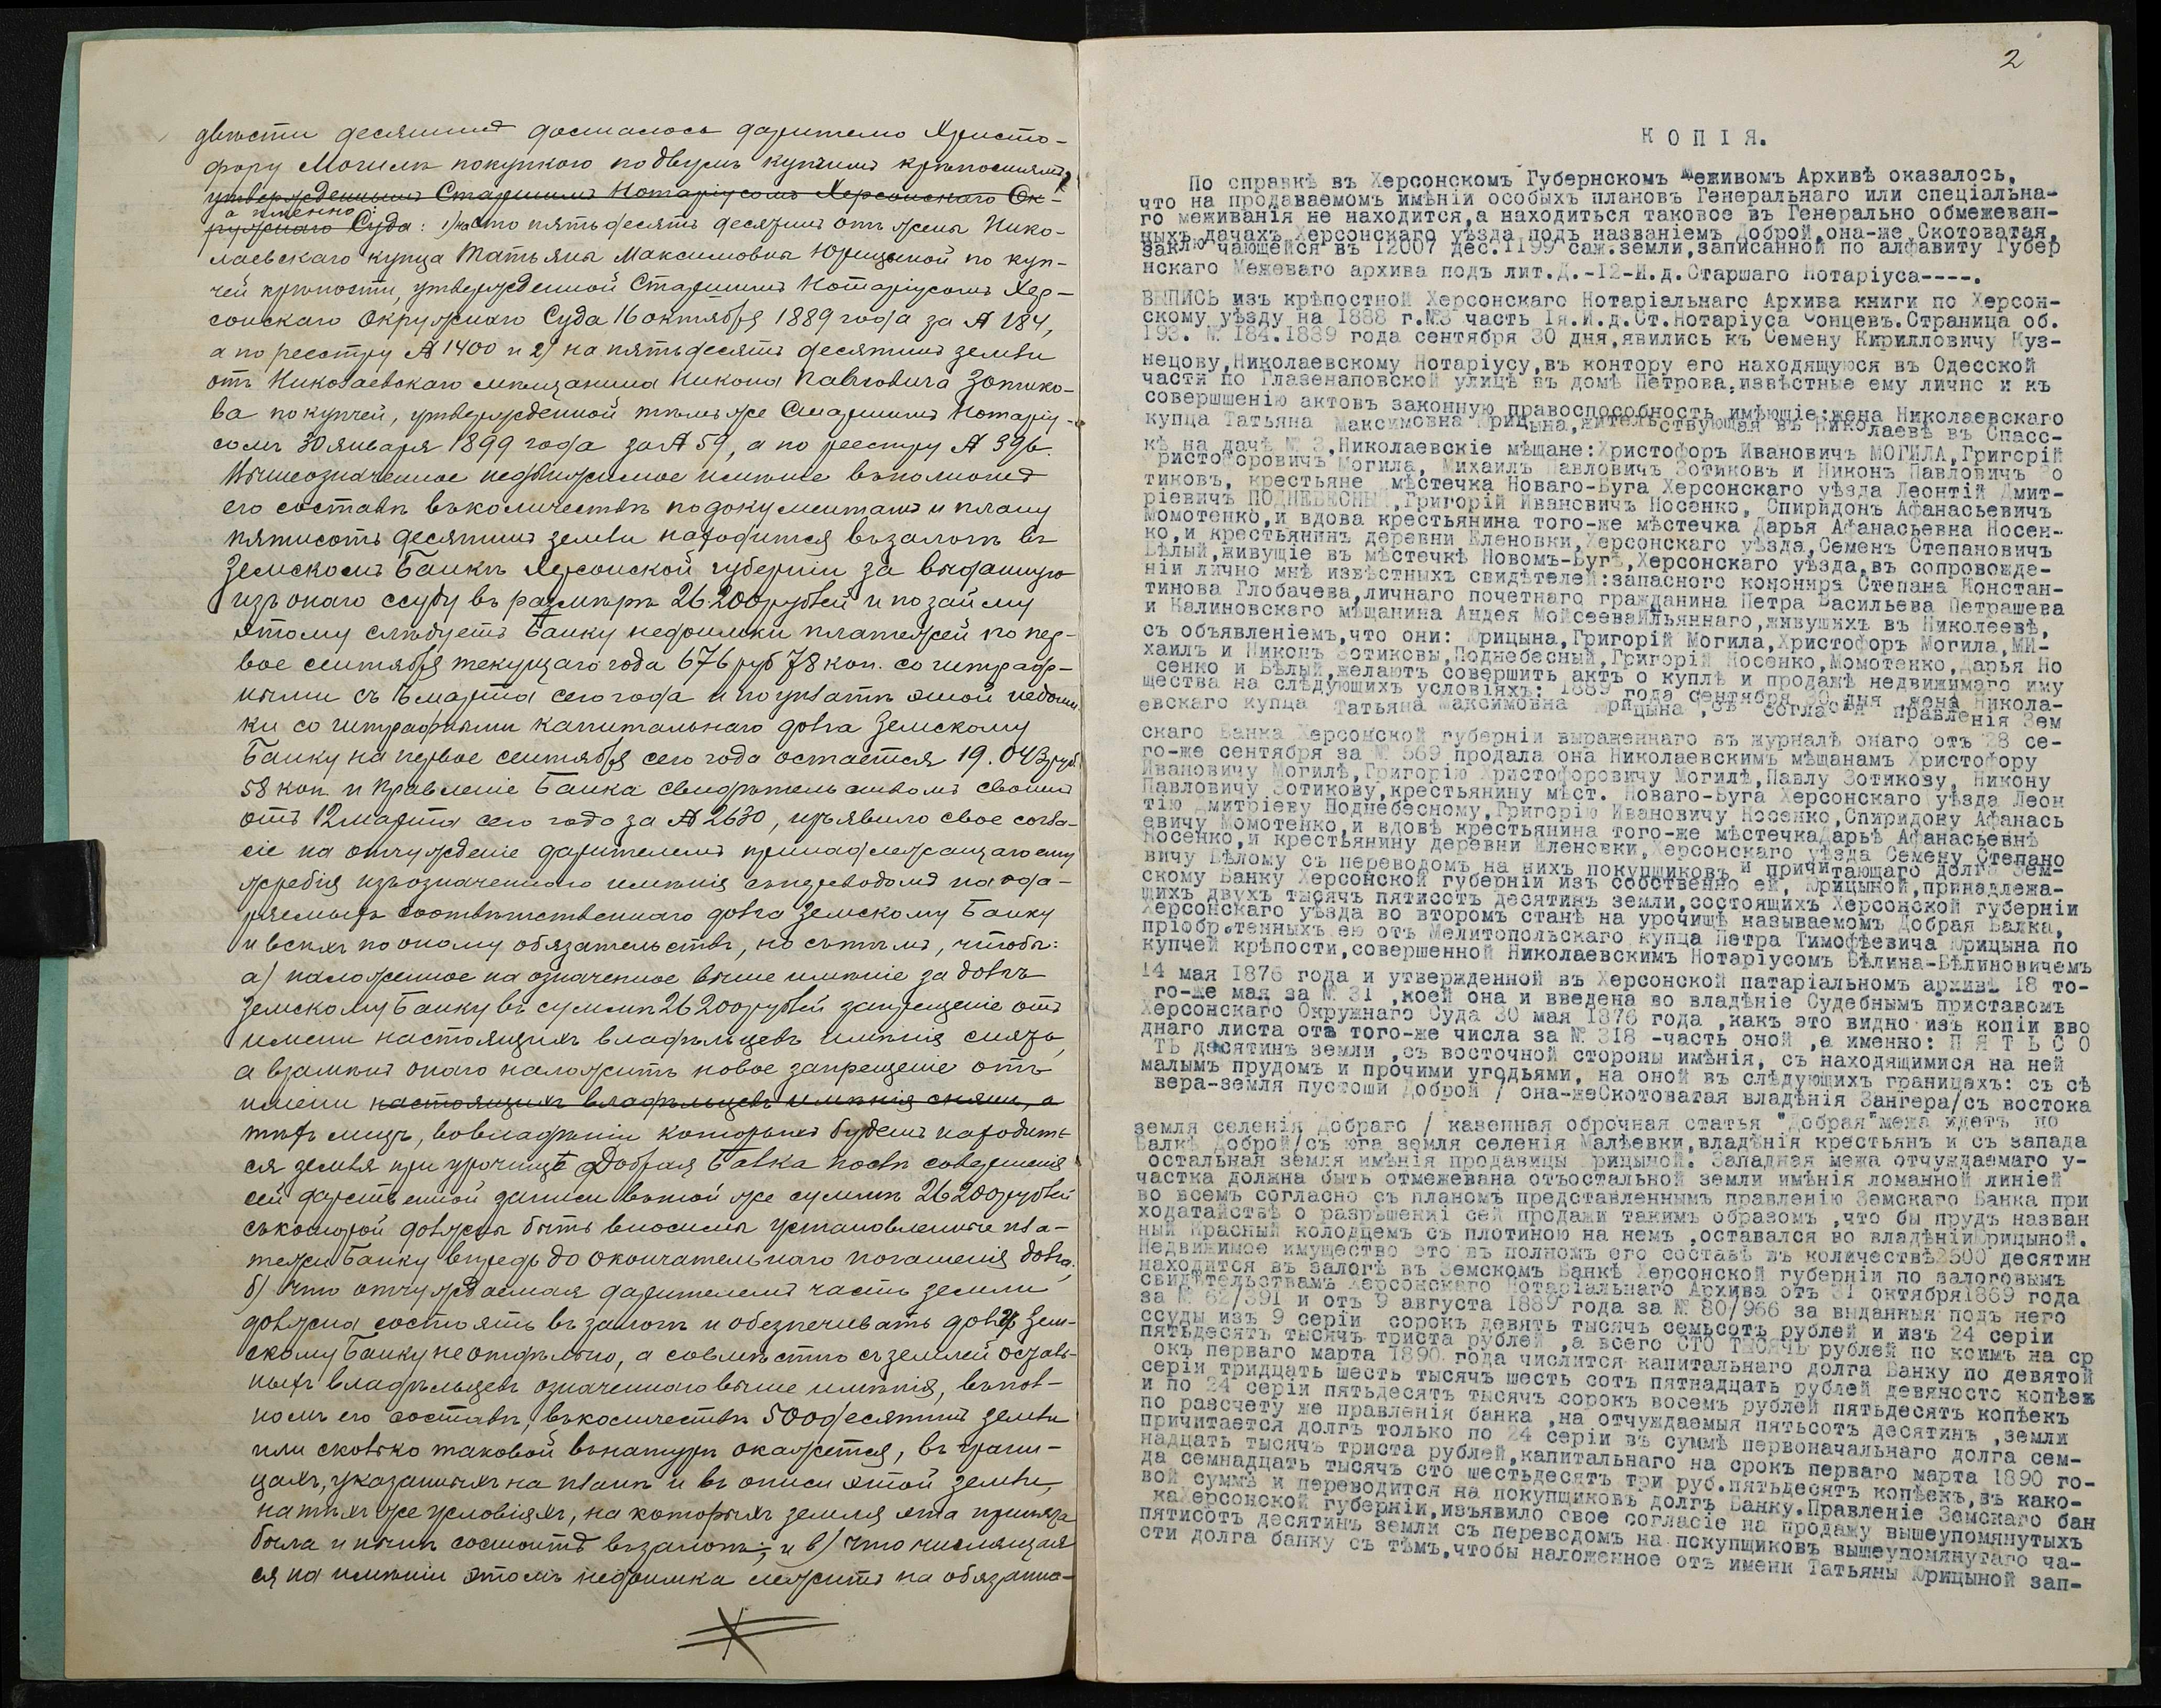 двѣсти десятинъ досталось дарителю Христо-
фору Могилѣ покупкою по двумъ купчимъ крѣпостямъ,
утвержденнымъ Старшимъ Нотаріусомъ Херсонскаго Ок-
а именно
ружнаго Суда: 1) на сто пятьдесятъ десятинъ отъ жены Нико-
лаевскаго купца Татьяны Максимовны Юрицыной по куп-
чей крѣпости, утвержденной Старшимъ Нотаріусомъ Хер-
сонскаго Окружнаго Суда 16 октября 1889 года за № 184,
а по реестру № 1400 и 2) на пятьдесятъ десятинъ земли
отъ Николаевскаго мѣщанина Никона Павловича Зотико-
ва по купчей, утвержденной тѣмъ же Старшимъ Нотаріу-
сомъ 30 января 1899 года за № 59, а по реестру № 396.
Вышеозначенное недвижимое имѣніе въ полномъ
его составѣ въ количествѣ по документамъ и плану
пятисотъ десятинъ земли находится въ залогѣ въ
Земскомъ Банкѣ Херсонской губерніи за выданную
изъ онаго ссуду въ размѣрѣ 26200 рублей и по займу
этому слѣдуетъ Банку недоимки платежей по пер-
вое сентября текущаго года 676 руб 78 коп. со штраф-
ными съ 1 марта сего года и по уплатѣ этой недоим-
ки со штрафными капитальнаго долга Земскому
Банку на первое сентября сего года остается 19.043 руб.
58 коп. и Правленіе Банка свидѣтельствомъ своимъ
отъ 12 марта сего года за № 2630, изъявило свое согла-
сіе на отчужденіе дарителемъ принадлежащаго ему
жребія изъ означеннаго имѣнія съ переводомъ на ода-
ряемыхъ соотвѣтственнаго долга Земскому Банку
и всѣхъ по оному обязательствъ, но съ тѣмъ, чтобы:
а) наложенное на означенное выше имѣніе за долгъ
Земскому Банку въ суммѣ 26200 рублей запрещеніе отъ
имени настоящихъ владѣльцевъ имѣнія снять,
а взамѣнъ онаго наложить новое запрещеніе отъ
имени настоящихъ владѣльцевъ имѣнія снять, а
тѣхъ лицъ, во владѣніи которыхъ будетъ находить-
ся земля при урочищѣ Добрая Балка послѣ совершенія
сей дарственной записи въ той же суммѣ 26200 рублей
съ которой должны быть вносимы установленные пла-
тежи Банку впредь до окончательнаго погашенія долга;
б) что отчуждаемая дарителемъ часть земли
должна состоять въ залогѣ и обезпечивать долгъ Зем-
скому Банку не отдѣльно, а совмѣстно съ землей осталь-
ныхъ владѣльцевъ означеннаго выше имѣнія, въ пол-
номъ его составѣ, въ количествѣ 500 десятинъ земли
или сколько таковой въ натурѣ окажется, въ грани-
цахъ, указанныхъ на планѣ и въ описи этой земли,
на тѣхъ же условіяхъ, на которыхъ земля эта принята
была и нынѣ состоитъ въ залогѣ; и в) что числящая-
ся на имѣніи этомъ недоимка лежитъ на обязанно-
2
КОПІЯ.
По справкѣ въ Херсонскомъ Губернскомъ Межевомъ Архивѣ оказалось,
что на продаваемомъ имѣніи особыхъ плановъ Генеральнаго или спеціальна-
го межеванія не находится,а находиться таковое въ Генерально обмежеван-
ныхъ дачахъ Херсонскаго уѣзда подъ названіемъ Доброй,она-же Скотоватая,
заклю чающейся въ 12007 дес.1199 саж.земли,записанной по алфавиту Губер
нскаго Межеваго архива подъ лит.Д.-12-И.д.Старшаго Нотаріуса----.
ВЫПИСЬ изъ крѣпостной Херсонскаго Нотаріальнаго Архива книги по Херсон-
скому уѣзду на 1888 г.№3 часть 1я.И.д.Ст.Нотаріуса Сонцевъ.Страница об.
193. № 184.1889 года сентября 30 дня,явились къ Семену Кирилловичу Куз-
нецову,Николаевскому Нотаріусу,въ контору его находящуюся въ Одесской
части по Глазенаповской улицѣ въ домѣ Петрова,извѣстные ему лично и къ
совершшенію актовъ законную правоспособность имѣющіе:жена Николаевскаго
купца Татьяна Максимовна Юрицына,жительствующая въ Николаевѣ въ Спасс-
кѣ на дачѣ № 3,Николаевскіе мѣщане:Христофоръ Ивановичъ МОГИЛА,Григорій
Христофоровичъ Могила, Михаилъ Павловичъ Зотиковъ и Никонъ Павловичъ Зо
тиковъ, крестьяне мѣстечка Новаго-Буга Херсонскаго уѣзда Леонтій Дмит-
ріевичъ ПОДНЕБЕСНЫЙ,Григорій Ивановичъ Носенко, Спиридонъ Афанасьевичъ
Момотенко,и вдова крестьянина того-же мѣстечка Дарья Афанасьевна Носен-
ко,и крестьянинъ деревни Еленовки,Херсонскаго уѣзда,Семенъ Степановичъ
Бѣлый,живущіе въ мѣстечкѣ Новомъ-Бугѣ,Херсонскаго уѣзда,въ сопровожде-
ніи лично мнѣ извѣстныхъ свидѣтелей:запаснаго кононира Степана Констан-
тинова Глобачева,личнаго почетнаго гражданина Петра Васильева Петрашева
и Калиновскаго мѣщанина Андея МойсееваИльяннаго,живущихъ въ Николеевѣ,
съ объявленіемъ,что они: Юрицына,Григорій Могила,Христофоръ Могила,МИ-
хаилъ и Никонъ Зотиковы,Поднебесный,Григорій Носенко,Момотенко,Дарья Но
сенко и Бѣлый,желаютъ совершить актъ о куплѣ и продажѣ недвижимаго иму
щества на слѣдующихъ условіяхъ: 1889 года сентября 30 дня ,жена Никола-
евскаго купца Татьяна Максимовна Юрицына ,съ согласія правленія Зем
скаго Банка Херсонской губерніи выраженнаго въ журналѣ онаго отъ 28 се-
го-же сентября за № 569 продала она Николаевскимъ мѣщанамъ Христофору
Ивановичу Могилѣ,Григорію Христофоровичу Могилѣ,Павлу Зотикову, Никону
Павловичу Зотикову,крестьянину мѣст. Новаго-Буга Херсонскаго уѣзда Леон
тію Дмитріеву Поднебесному,Григорію Ивановичу Носенко,Спиридону Афанась
евичу Момотенко,и вдовѣ крестьянина того-же мѣстечкаДарьѣ Афанасьевнѣ
Носенко,и крестьянину деревни Еленовки,Херсонскаго уѣзда Семену Степано
вичу Бѣлому съ переводомъ на нихъ покупщиковъ и причитающаго долга Зем-
скому Банку Херсонской губерніи изъ собственно ей, Юрицыной,принадлежа-
щихъ двухъ тысячъ пятисотъ десятинъ земли,состоящихъ Херсонской губерніи
Херсонскаго уѣзда во второмъ станѣ на урочищѣ называемомъ Добрая Балка,
пріобр.тенныхъ ею отъ Мелитопольскаго купца Петра Тимофѣевича Юрицына по
купчей крѣпости,совершенной Николаевскимъ Нотаріусомъ Бѣлина-Бѣлиновичемъ
14 мая 1876 года и утвержденной въ Херсонской натаріальномъ архивѣ 18 то-
го-же мая за № 31 ,коей она и введена во владѣніе Судебнымъ приставомъ
Херсонскаго Окружнаго Суда 30 мая 1876 года ,какъ это видно изъ копіи вво
днаго листа отъ того-же числа за № 318 -часть оной ,а именно: П Я Т Ь С О
ТЬ десятинъ земли ,съ восточной стороны имѣнія, съ находящимися на ней
малымъ прудомъ и прочими угодьями, на оной въ слѣдующихъ границахъ: съ сѣ
вера-земля пустоши Доброй / она-жеСкотоватая владѣнія Зангера/съ востока
земля селенія Добраго / казенная оброчная статья "Добрая"межа идетъ по
Балкѣ Доброй/съ юга земля селенія Малѣевки,владѣнія крестьянъ и съ запада
остальная земля имѣнія продавицы Юрицыной. Западная межа отчуждаемаго у-
частка должна быть отмежевана отъостальной земли имѣнія ломанной линіей
во всемъ согласно съ планомъ представленнымъ правленію Земскаго Банка при
ходатайствѣ о разрѣшеніи сей продажи такимъ образомъ ,что бы прудъ назван
ный Красный колодцемъ съ плотиною на немъ ,оставался во владѣнійЮрицыной.
Недвижимое имущество это въ полномъ его составѣ въ количествѣ2500 десятин
находится въ залогѣ въ Земскомъ Банкѣ Херсонской губерніи по залоговымъ
свидѣтельствамъ Херсонскаго Нотаріальнаго Архива отъ 31 октября1869 года
за № 62/391 и отъ 9 августа 1889 года за № 80/966 за выданныя подъ него
ссуды изъ 9 серіи сорокъ девять тысячъ семьсотъ рублей и изъ 24 серіи
пятьдесятъ тысячъ триста рублей ,а всего СТО ТЫСЯЧЪ рублей по коимъ на ср
окъ перваго марта 1890 года числится капитальнаго долга Банку по девятой
серіи тридцать шесть тысячъ шесть сотъ пятнадцать рублей девяносто копѣек
и по 24 серіи пятьдесятъ тысячъ сорокъ восемъ рублей пятьдесятъ копѣекъ
по разсчету же правленія банка ,на отчуждаемыя пятьсотъ десятинъ ,земли
причитается долгъ только по 24 серіи въ суммѣ первоначальнаго долга сем-
надцать тысячъ триста рублей,капитальнаго на срокъ перваго марта 1890 го-
да семнадцать тысячъ сто шестьдесятъ три руб.пятьдесятъ копѣекъ,въ како-
вой суммѣ и переводится на покупщиковъ долгъ Банку.Правленіе Земскаго бан
каХерсонской губерніи,изъявило свое согласіе на продажу вышеупомянутыхъ
пятисотъ десятинъ земли съ переводомъ на покупщиковъ вышеупомянутаго ча-
сти долга банку съ тѣмъ,чтобы наложенное отъ имени Татьяны Юрицыной зап-